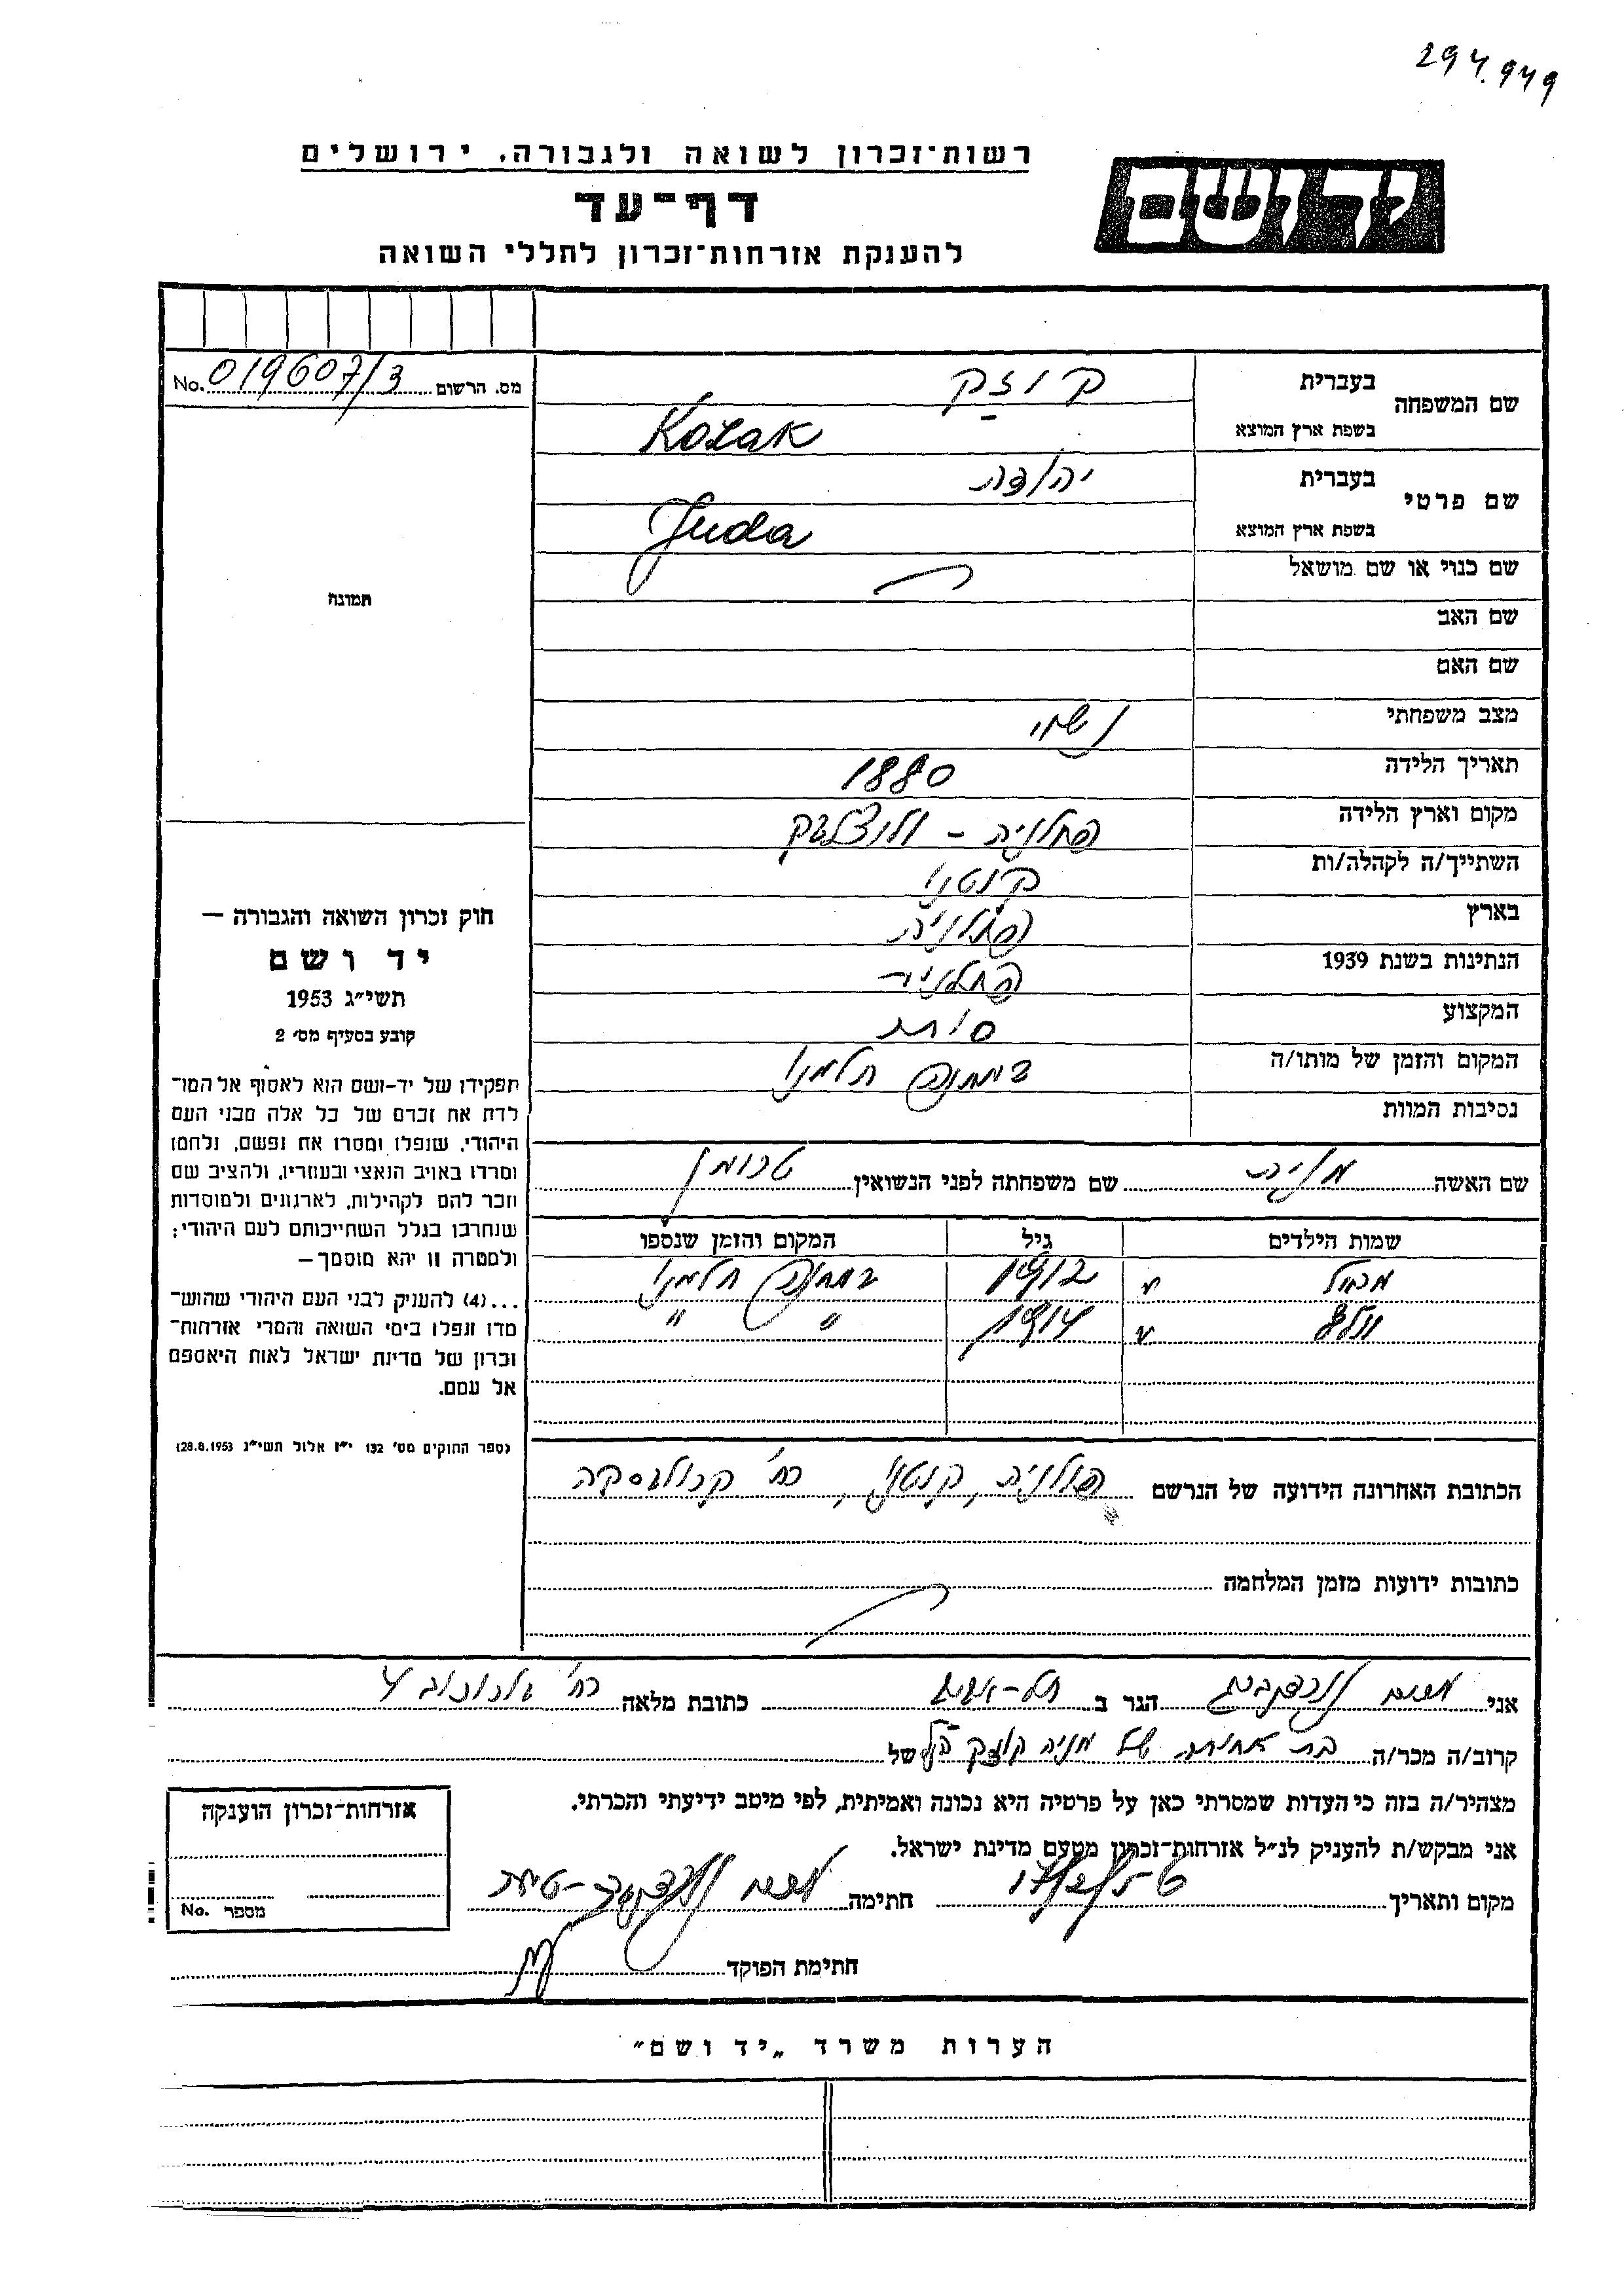 294.949
רשות־זכרון לשואה ולגבורה, ירושלים
יד ושם
דף־עד
להענקת אזרחות־זכרון לחללי השואה
מס. הרשום 019607/3 No.
שם המשפחה
בעברית קוזק
בשפת ארץ המוצא Kozak
שם פרטי
בעברית יהודה
בשפת ארץ המוצא Juda
שם כנוי או שם מושאל
שם האב
שם האם
מצב משפחתי נשוי
תאריך הלידה 1880
מקום וארץ הלידה פולניה -
השתייך/ה לקהלה/ות קוטנו
בארץ פולניה
הנתינות בשנת 1939 פולנית
המקצוע סוחר
המקום והזמן של מותו/ה במחנה חלמנו
נסיבות המוות
תמונה
חוק זכרון השואה והגבורה —
יד ושם
תשי״ג 1953
קובע בסעיף מס׳ 2
תפקידו של יד-ושם הוא לאסוף אל המו־
לדת את זכרם של כל אלה מבני העם
היהודי, שנפלו ומסרו את נפשם, נלחמו
ומרדו באויב הנאצי ובעוזריו, ולהציב שם
וזכר להם לקהילות, לארגונים ולמוסדות
שנחרבו בגלל השתייכותם לעם היהודי;
ולמטרה זו יהא מוסמך —
...(4) להעניק לבני העם היהודי שהוש־
מדו ונפלו בימי השואה והמרי אזרחות־
זכרון של מדינת ישראל לאות היאספם
אל עמם.
(ספר החוקים מס׳ 132 י״ז אלול תשי״ג 28.8.1953)
שם האשה מניה שם משפחתה לפני הנשואין
שמות הילדים גיל המקום והזמן שנספו
1912 במחנה חלמנו
1914 " "
הכתובת האחרונה הידועה של הנרשם פולניה, קוטנו, רח׳
כתובות ידועות מזמן המלחמה
אני הגר ב תל-אביב כתובת מלאה רח׳ 4
קרוב/ה מכר/ה בת אחותה של מניה קוזק של
מצהיר/ה בזה כי העדות שמסרתי כאן על פרטיה היא נכונה ואמיתית, לפי מיטב ידיעתי והכרתי.
אני מבקש/ת להעניק לנ״ל אזרחות־זכרון מטעם מדינת ישראל.
מקום ותאריך חתימה
חתימת הפוקד
אזרחות־זכרון הוענקה
מספר No.
הערות משרד „יד ושם״